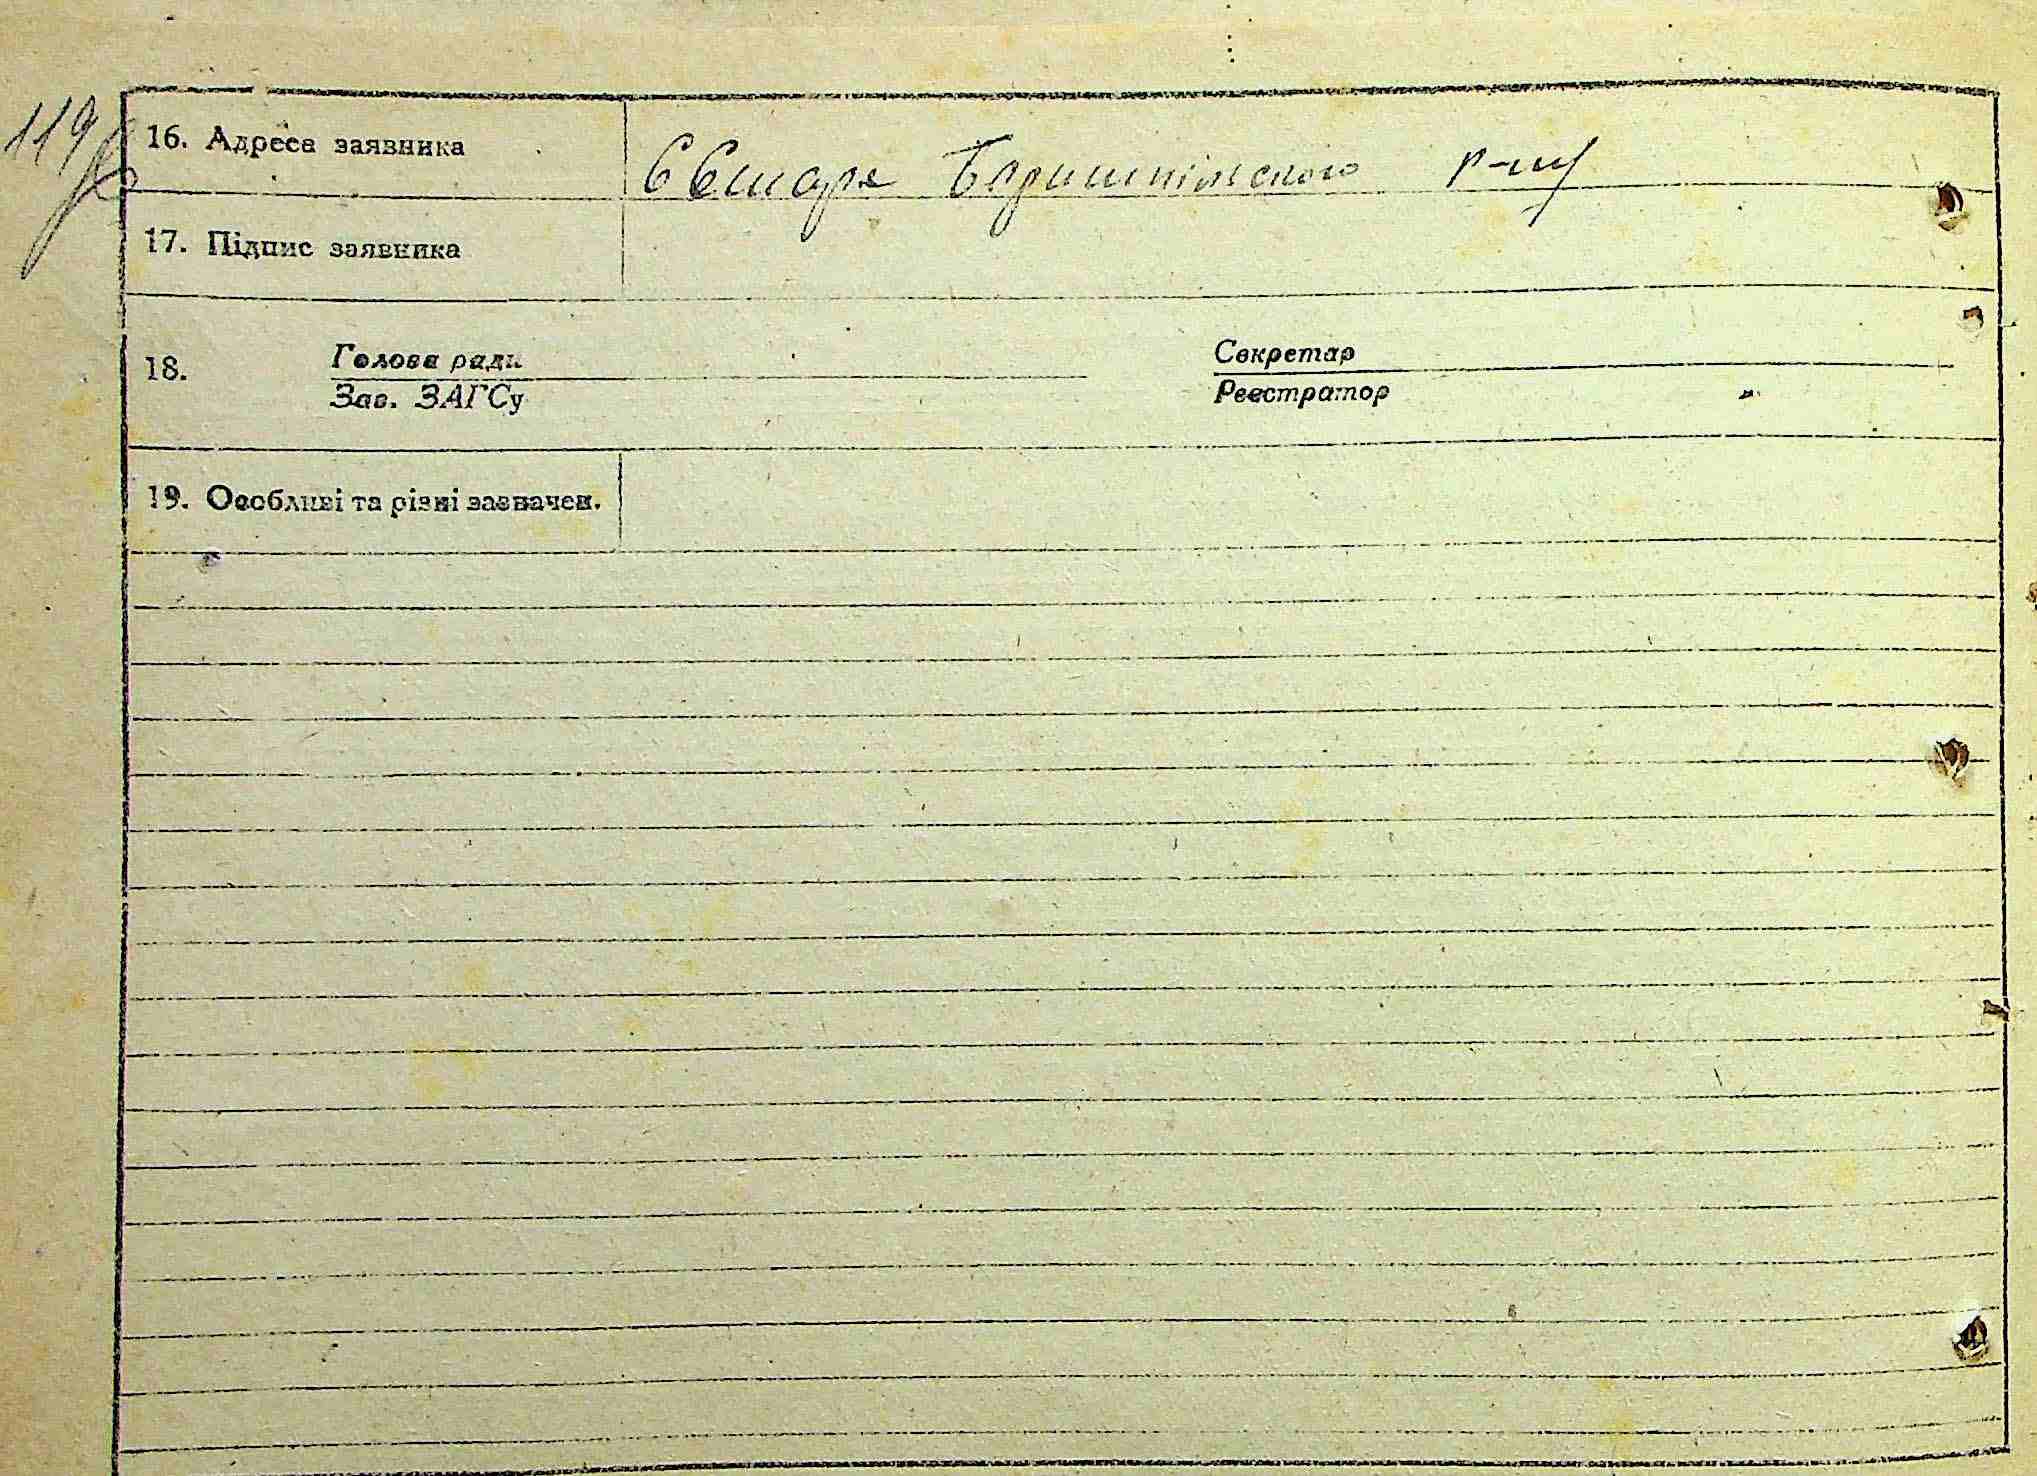 119
16. Адреса заявника
Баришпільского р-ну
17. Підпис заявника
18.
Голова ради
Зав. ЗАГСу
Секретар
Реєстратор
19. Особливі та різні зазначен.